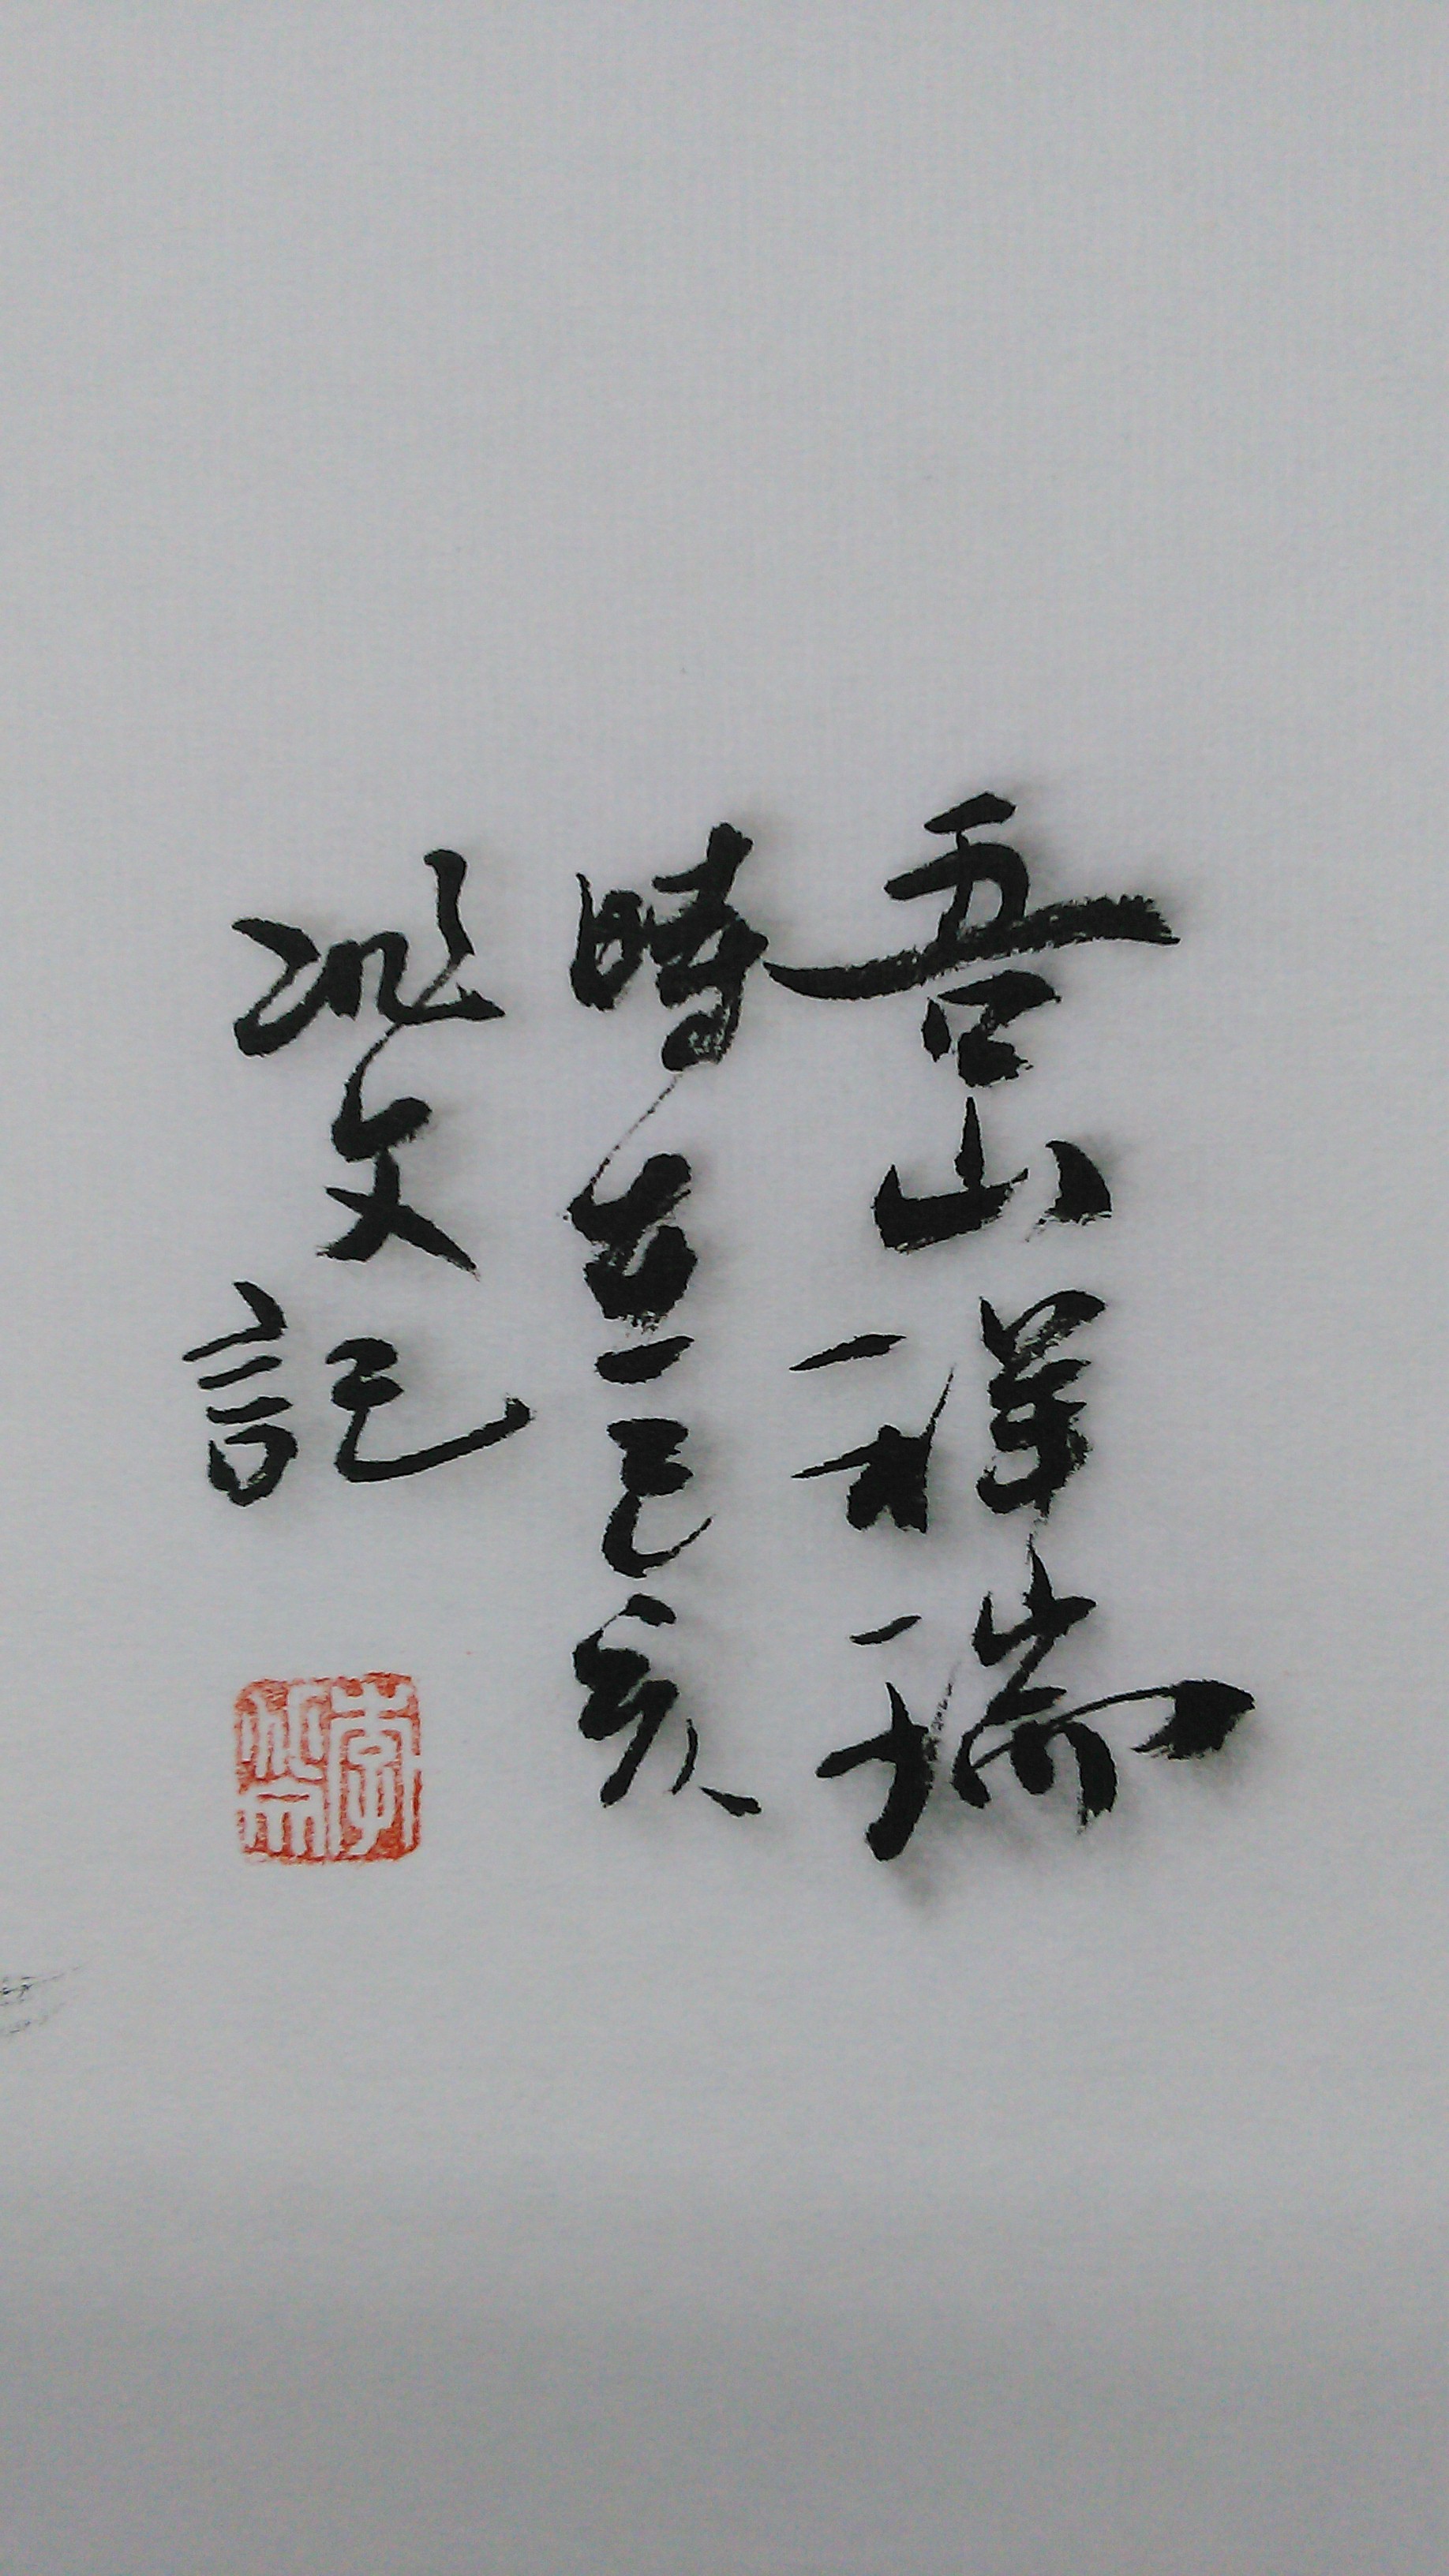 吾山祥瑞
時在己亥
文記